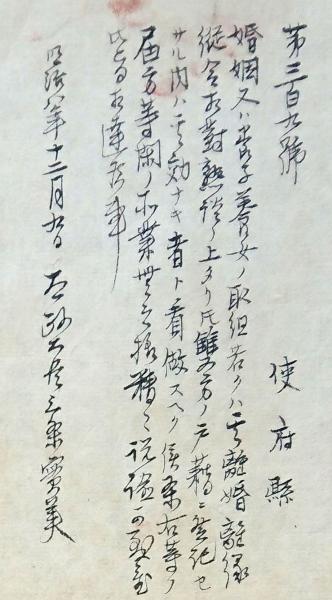 第三百九號
使府縣
婚姻又ハ養子養女ノ取組若クハ其離婚離縁
縱令相對熟談ノ上タリ𪜈雙方ノ戸籍ニ登記セ
サル内ハ其効ナキ者ト看做スヘク候条右等ノ
届方等閑ノ所業無之様精々説諭可致置
此旨相達候事
明治八年十二月九日 太政大臣三条實美